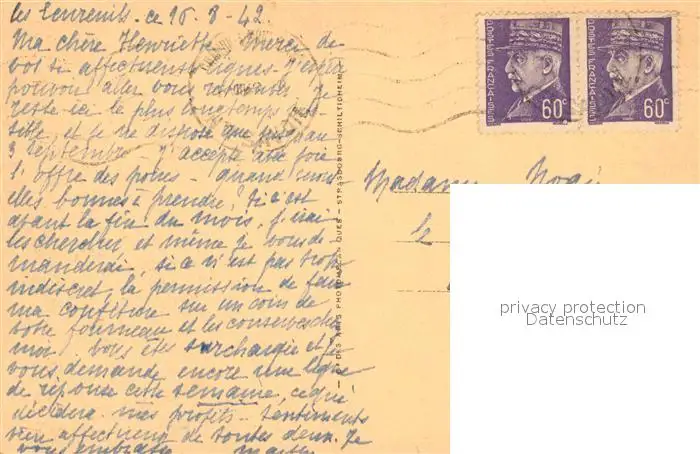 ce 16-8-42
Ma chère Henriette - Merci de
vos si affectueuses lignes - J'espère
pouvoir aller vous
reste ici le plus longtemps pos-
sible, et je ne dispose que jusqu'au
3 Septembre - J'accepte avec joie
l'offre des poires - Quand seront-
elles bonnes à prendre, si c'est
avant la fin du mois, j'irai
les chercher, et même je vous de-
manderai, si ce n'est pas trop
indiscret la permission de faire
ma confiture sur un coin de
votre fourneau et les conserves chez
moi. Vous êtes surchargée et je
vous demande encore une ligne
de réponse cette semaine, ce qui
décidera mes projets - Sentiments
bien affectueux de toutes deux. Je
vous embrasse
POSTES FRANÇAISES
60c
POSTES FRANÇAISES
60c
STRASBOURG-SCHILTIGHEIM
Madame
privacy protection
Datenschutz